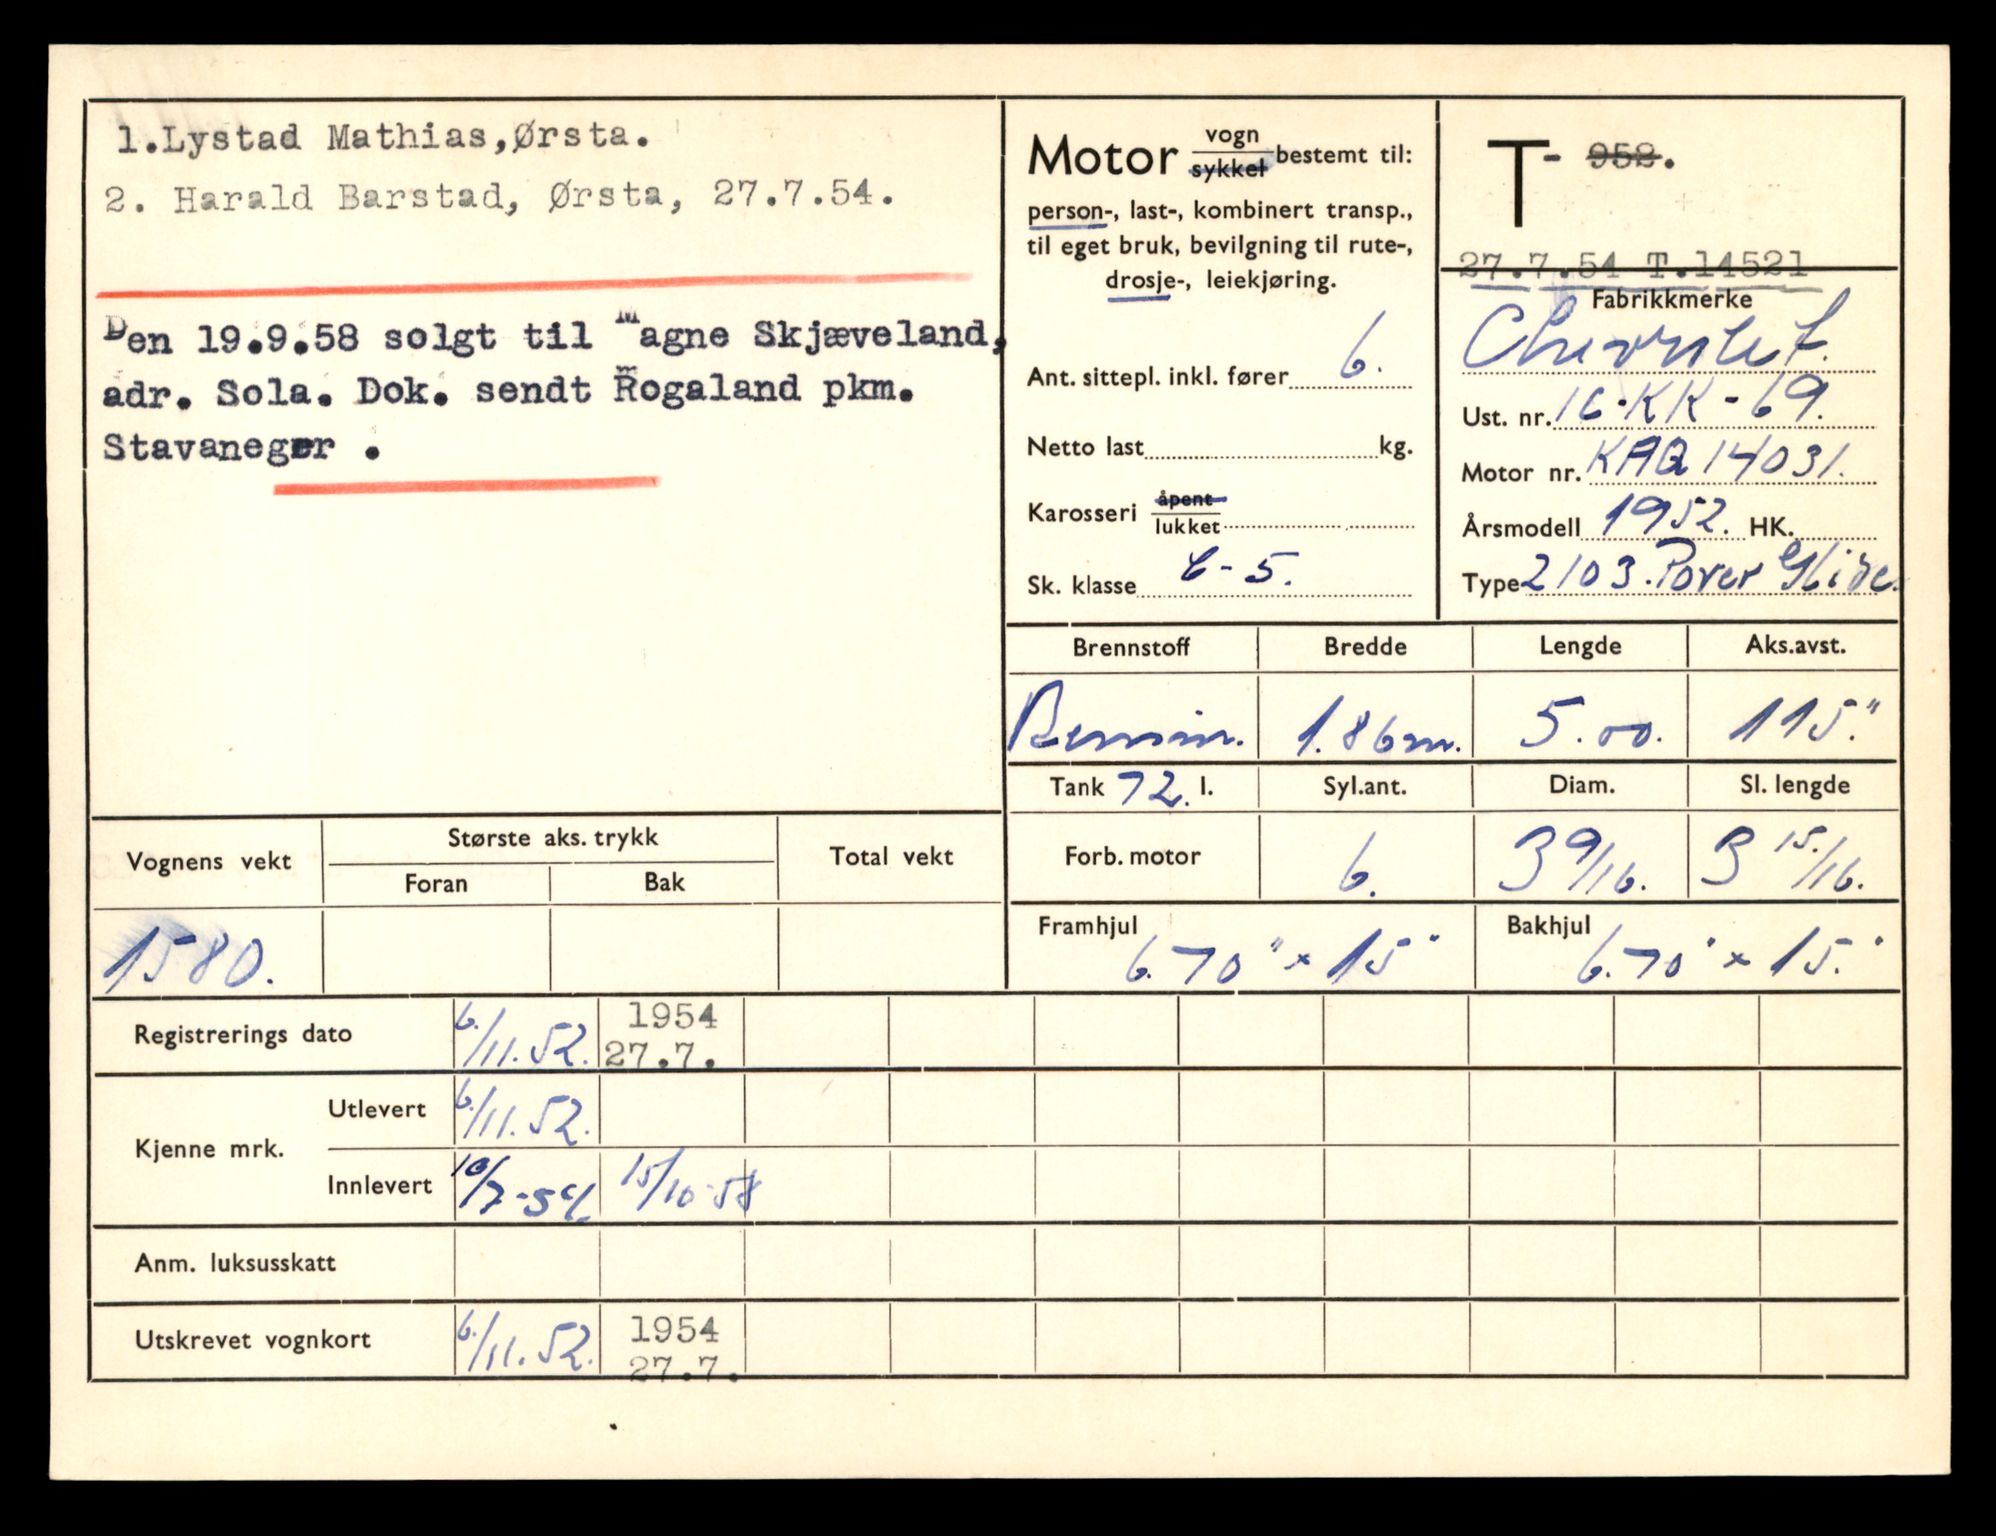 1.Lystad Mathias,Ørsta.
2. Harald Barstad, Ørsta, 27.7.54.
Den 19.9.58 solgt til Magne Skjæveland,
adr. Sola. Dok. sendt Rogaland pkm.
Stavaneger .
Motor vogn/sykkel bestemt til:
person-, last-, kombinert transp.,
til eget bruk, bevilgning til rute-,
drosje-, leiekjøring.
Ant. sittepl. inkl. fører 6.
Netto last kg.
Karosseri åpent/lukket
Sk. klasse C-5.
T- 952.
27.7.54 T.14521
Fabrikkmerke
Chevrolet.
Ust. nr. 16-KK-69.
Motor nr. KAQ 14031.
Årsmodell 1952. HK.
Type 2103. Pover Glide.
Brennstoff Bredde Lengde Aks.avst.
Bensin. 1.86m. 5.00. 115."
Tank 72. l. Syl.ant. Diam. Sl. lengde
Forb. motor 6. 3 9/16. 3 15/16.
Framhjul 6.70" x 15" Bakhjul 6.70" x 15."
Vognens vekt Største aks. trykk Total vekt
Foran Bak
1580.
Registrerings dato 6./11.52. 1954 27.7.
Kjenne mrk. Utlevert 6./11.52.
Innlevert 10/7-54. 15/10-58
Anm. luksusskatt
Utskrevet vognkort 6./11.52. 1954 27.7.